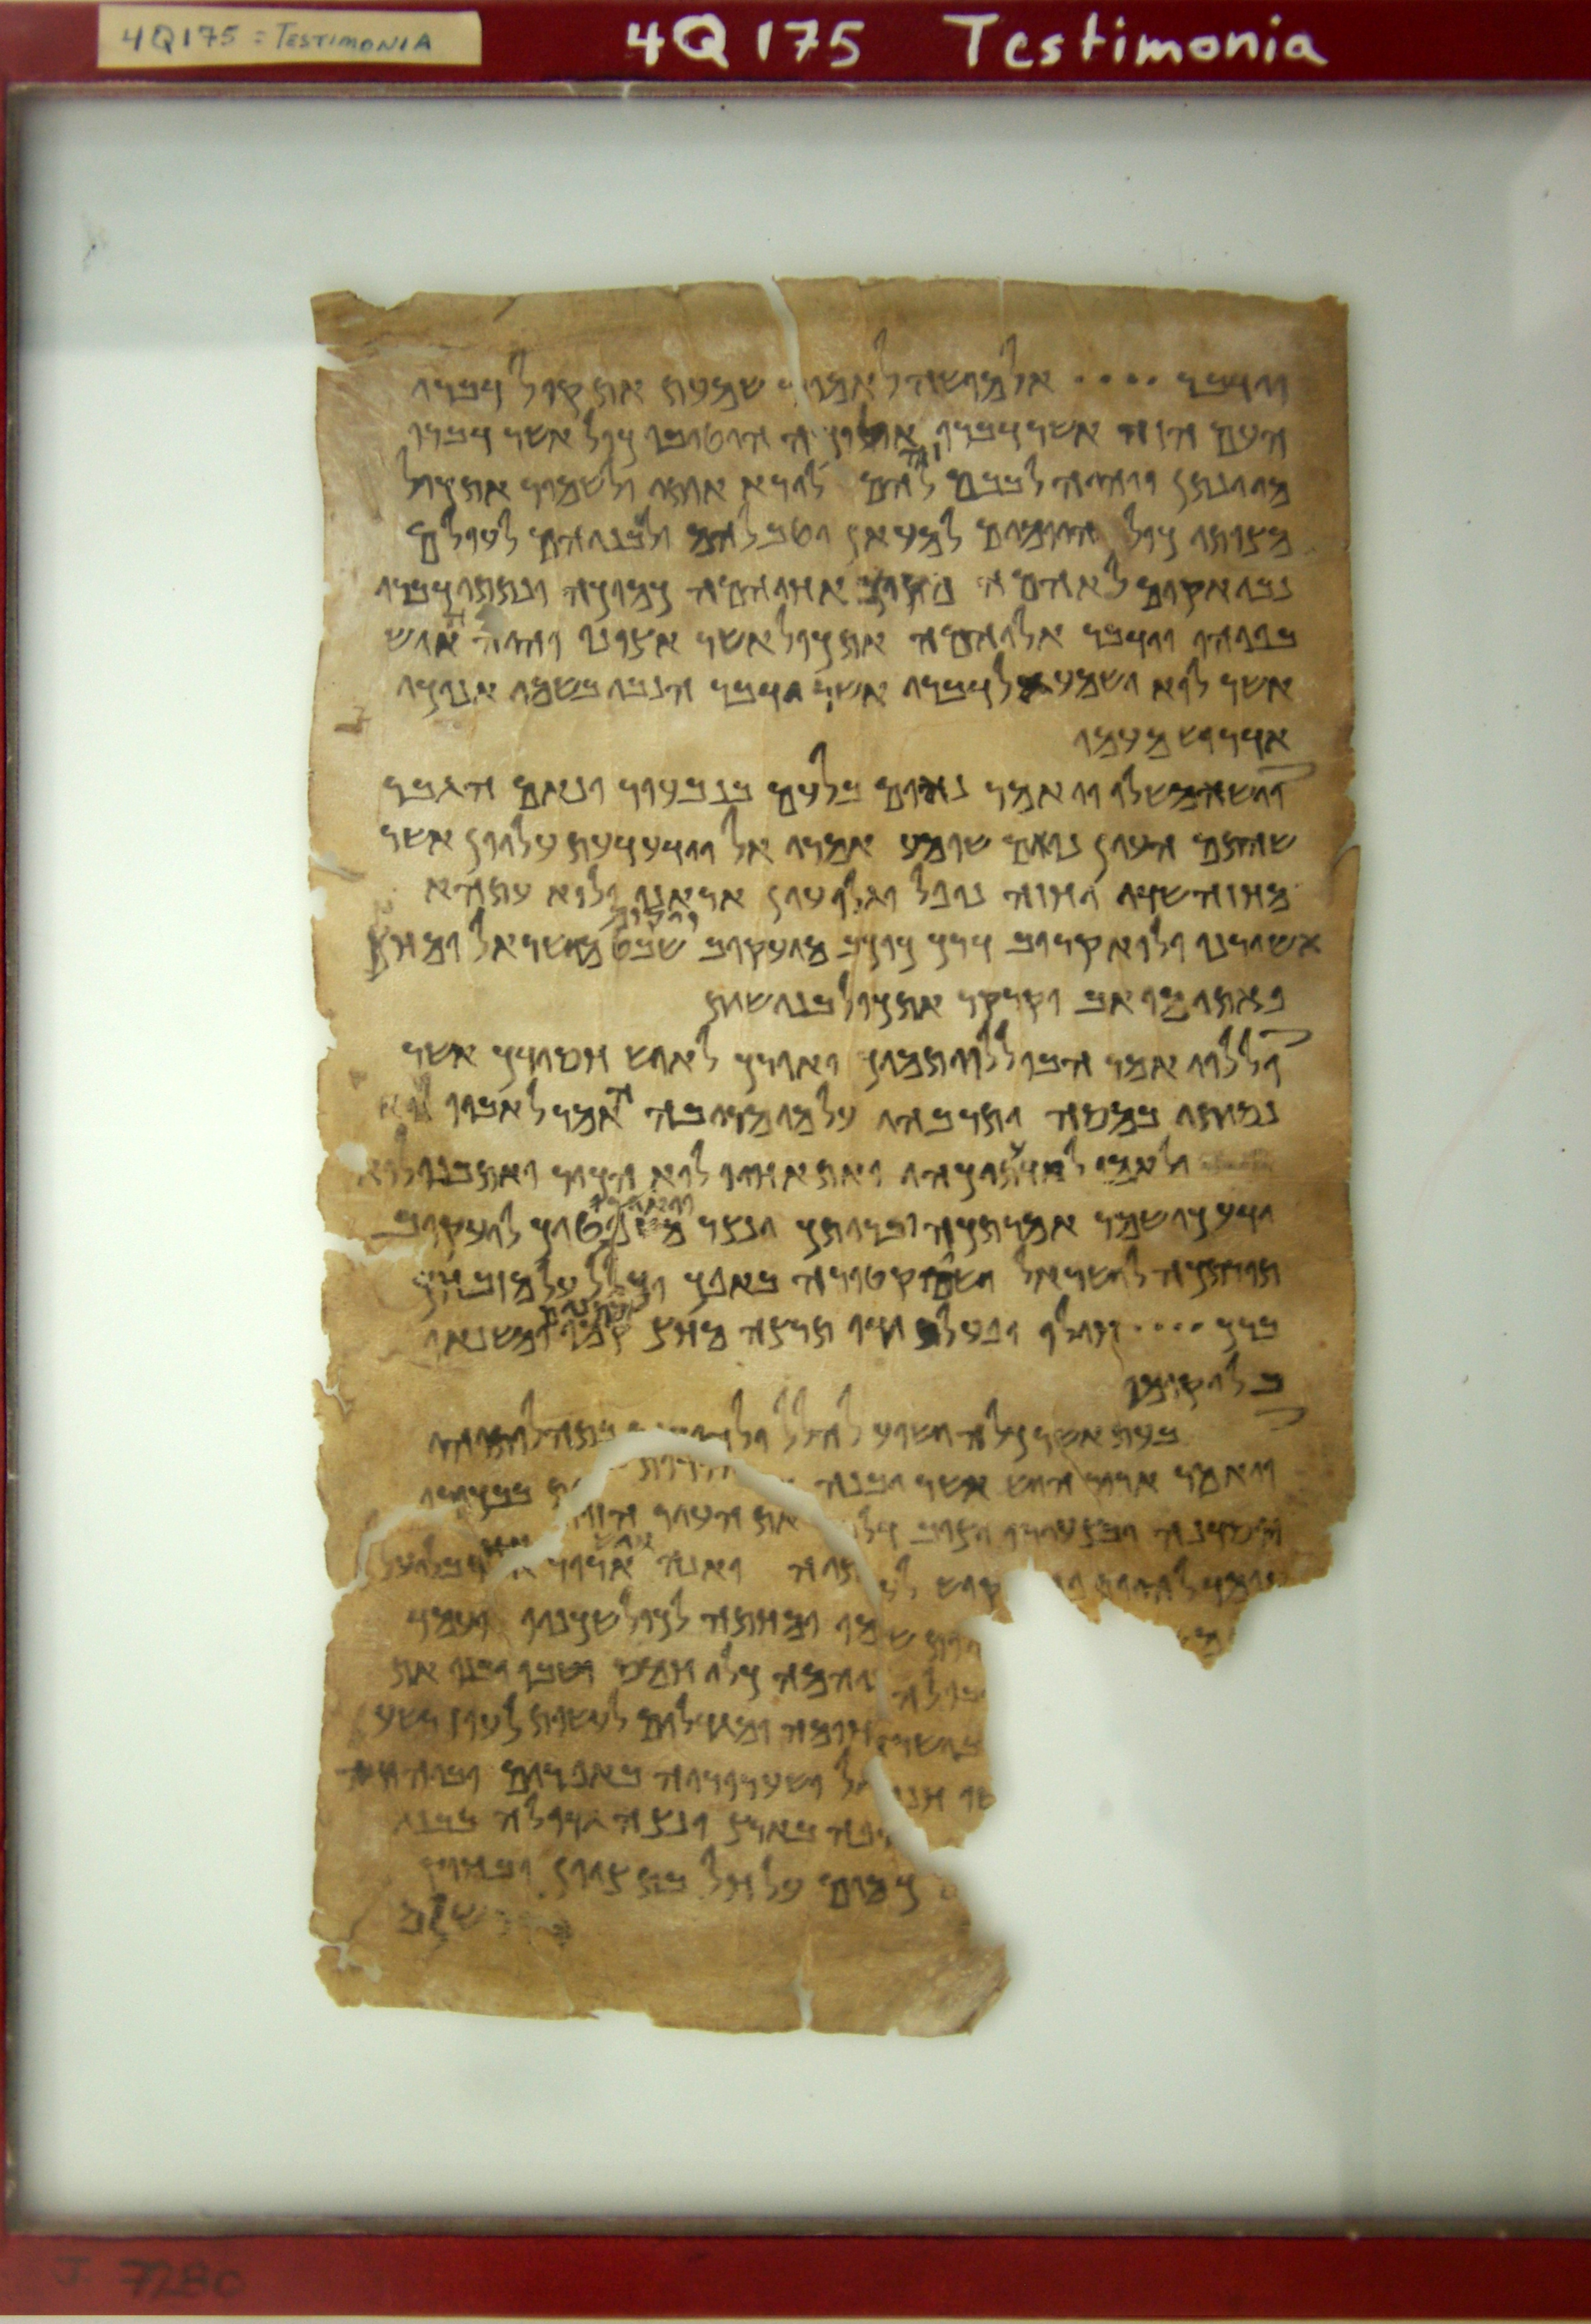 4Q175 = TESTIMONIA
4Q175 Testimonia
וידבר •••• אל מושה לאמור שמעת את קול דברי
העם הזה אשר דברו אליכה היטיבו כול אשר דברו
מי ינתן ויהיה לבבם זה להם לירא אותי ולשמור את כול
מצותי כול היומים למעאן יטב להם ולבניהם לעולם
נבי אקים לאהמה מקרב אחיהמה כמוכה ונתתי דברי
בפיהו וידבר אליהמה את כול אשר אצונו והיה האיש
אשר לוא ישמע אל דברי אשר ידבר הנבי בשמי אנוכי
אדרוש מעמו
וישא משלו ויאמר נאום בלעם בנבעור ונאם הגבר
שהתם העין נואם שומע אמרי אל וידע דעת עליון אשר
מחזה שדי יחזה נופל וגלו עין אראנו ולוא עתהא
אשורנו ולוא קרוב דרך כוכב מיעקוב ויקום שבט מישראל ומחץ
פאתי מואב וקרקר את כול בני שית
וללוי אמר הבו ללוי תמיך ואורך לאיש חסידך אשר
נסיתו במסה ותרבהו על מי מריבה האמר לאביו לוא
ולאמו לוא ידעתיכהו ואת אחיו לוא הכיר ואת בנו לוא
ידע כי שמר אמרתכה ובריתך ינצר ויאירו משפטיך ליעקוב
תורתכה לישראל ישים קטורה באפך וכליל על מזבחך
ברך •••• חילו ופעל ידו תרצה מחץ מתנים קמו ומשנאו
בל יקומו
בעת אשר כלה ישוע להלל ולהודות בתהלותיהו
ויאמר ארור היש אשר יבנה בבכורו
ייסדנה ובצעירו יציב דלתיה את העיר הזות
ואנה ארור איש בליעל
ומחתה לכול שכניו ועמד
להיות שניהמה כלי חמס ושבו ובנו את
חומה ומגדלים לעשות לעוז רשע
בישראל ושערוריה באפרים וביהודה
חנופה בארץ ונצה גדולה בבני
כמים על חל בת ציון ובחוק
ירושלם
J. 7280